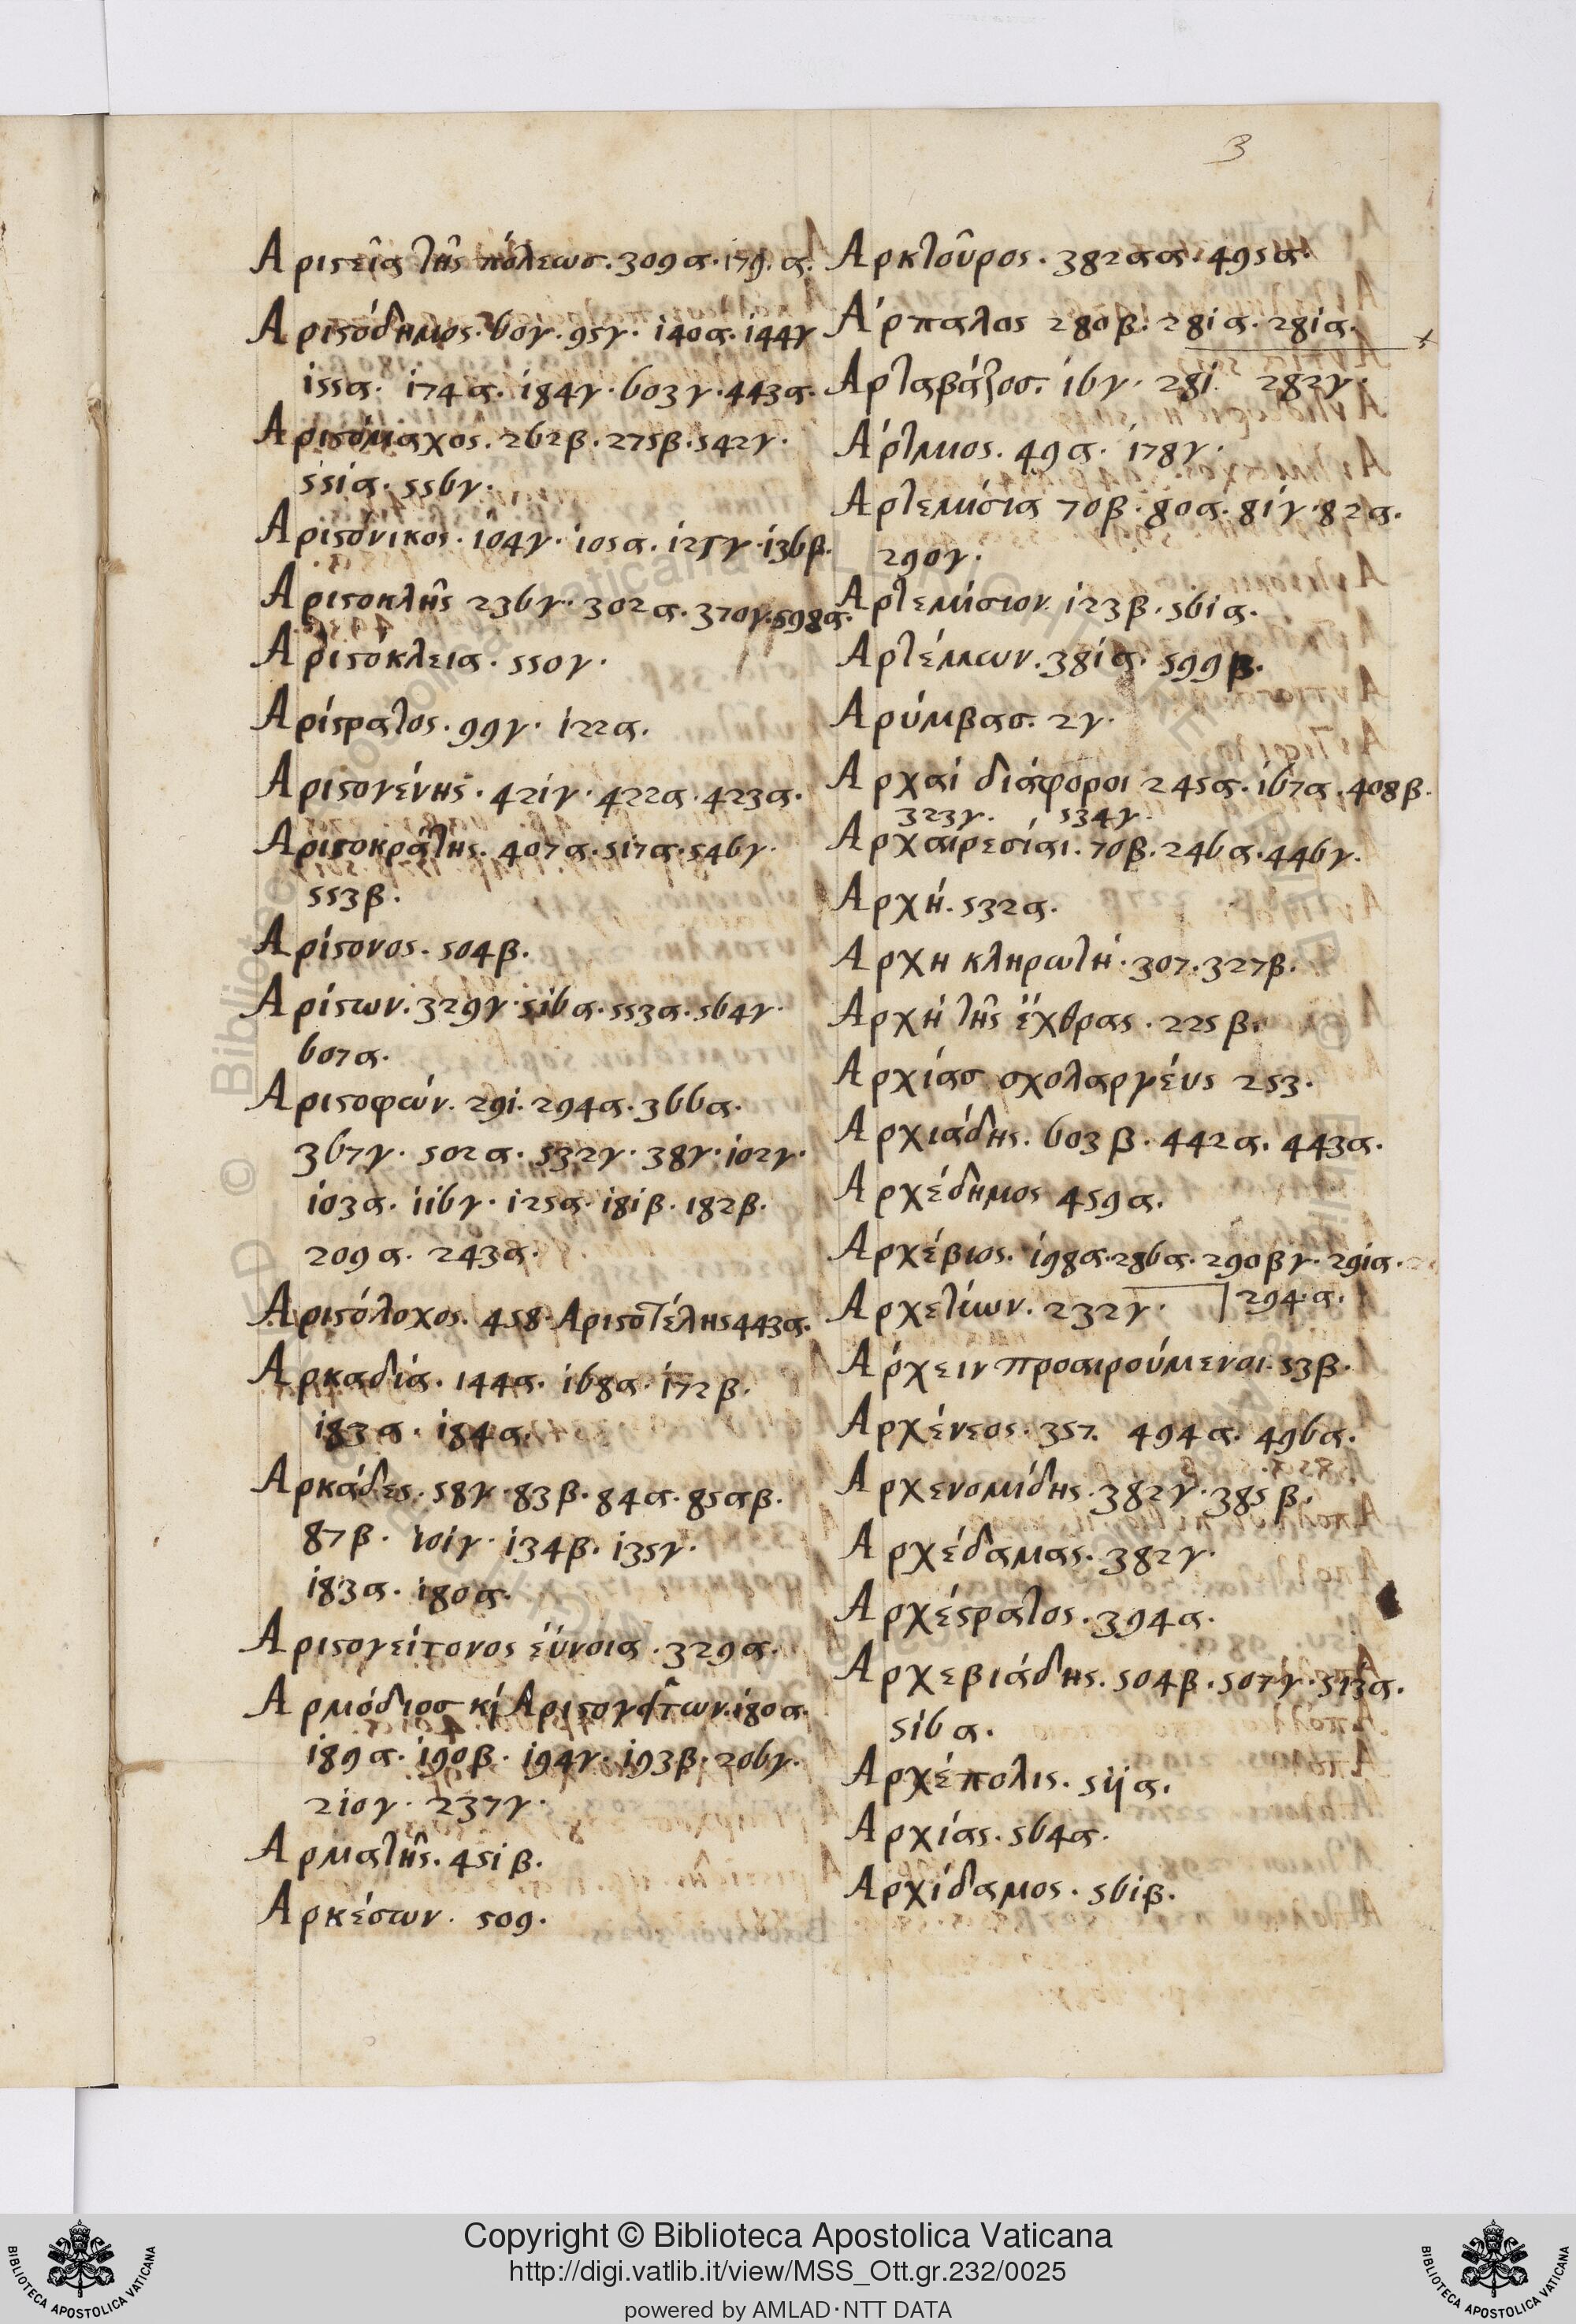 3
Αριστεῖα τῆς πόλεως. 309α. 179. α.
Αριστόδημος. 60γ. 95γ. 140α. 144γ
155α. 174α. 184γ. 603γ. 443α.
Αριστόμαχος. 262β. 275β. 542γ.
551α. 556γ.
Αριστόνικος. 104γ. 105α. 125γ. 136β.
Αριστοκλῆς 236γ. 302α. 370γ. 598α.
Αριστόκλεια. 550γ.
Αρίστρατος. 99γ. 122α.
Αριστογένης. 421γ. 422α. 423α.
Αριστοκράτης. 407α. 517α. 546γ.
553β.
Αρίστονος. 504β.
Αρίστων. 329γ. 516α. 553α. 564γ.
607α.
Αριστοφών. 291. 294α. 366α.
367γ. 502α. 532γ. 38γ. 102γ.
103α. 116γ. 125α. 181β. 182β.
209α. 243α.
Αριστόλοχος. 458. Αριστοτέλης 443α.
Αρκαδία. 144α. 168α. 172β.
183α. 184α.
Αρκάδες. 58γ. 83β. 84α. 85αβ.
87β. 101γ. 134β. 135γ.
183α. 180α.
Αριστογείτονος εύνοια. 329α.
Αρμόδιος κὶ Αριστογείτων. 180α.
189α. 190β. 194γ. 193β. 206γ.
210γ. 237γ.
Αρματῆς. 451β.
Αρκέσων. 509.
Αρκτοῦρος. 382αα. 495α.
Αʹρπαλος 280β. 281α. 281α.
Αρταβάζος. 16γ. 281. 282γ.
Αʹρτμιος. 49α. 178γ.
Αρτεμισία 70β. 80α. 81γ. 82α.
290γ.
Αρτεμίσιον. 123β. 561α.
Αρτέμων. 381α. 599β.
Αρύμβας. 2γ.
Αρχαί διάφοροι 245α. 167α. 408β.
323γ. 534γ.
Αρχαιρεσίαι. 70β. 246α. 446γ.
Αρχή. 532α.
Αρχη κληρωτή. 307. 327β.
Αρχή τῆς ἔχθρας. 225β.
Αρχίας σχολαργέυς 253.
Αρχιάδης. 603β. 442α. 443α.
Αρχέδημος 459α.
Αρχέβιος. 198α. 286α. 290βγ. 291α.
294.α.
Αρχετίων. 232γ.
Αρχειν προαιρούμενοι. 53β.
Αρχένεος. 357. 494α. 496α.
Αρχενομίδης. 382γ. 385β.
Αρχέδαμας. 382γ.
Αρχέστρατος. 394α.
Αρχεβιάδης. 504β. 507γ. 513α.
516α.
Αρχέπολις. 511α.
Αρχίας. 564α.
Αρχίδαμος. 561β.
Copyright © Biblioteca Apostolica Vaticana
http://digi.vatlib.it/view/MSS_Ott.gr.232/0025
powered by AMLAD·NTT DATA
BIBLIOTECA APOSTOLICA VATICANA
BIBLIOTECA APOSTOLICA VATICANA